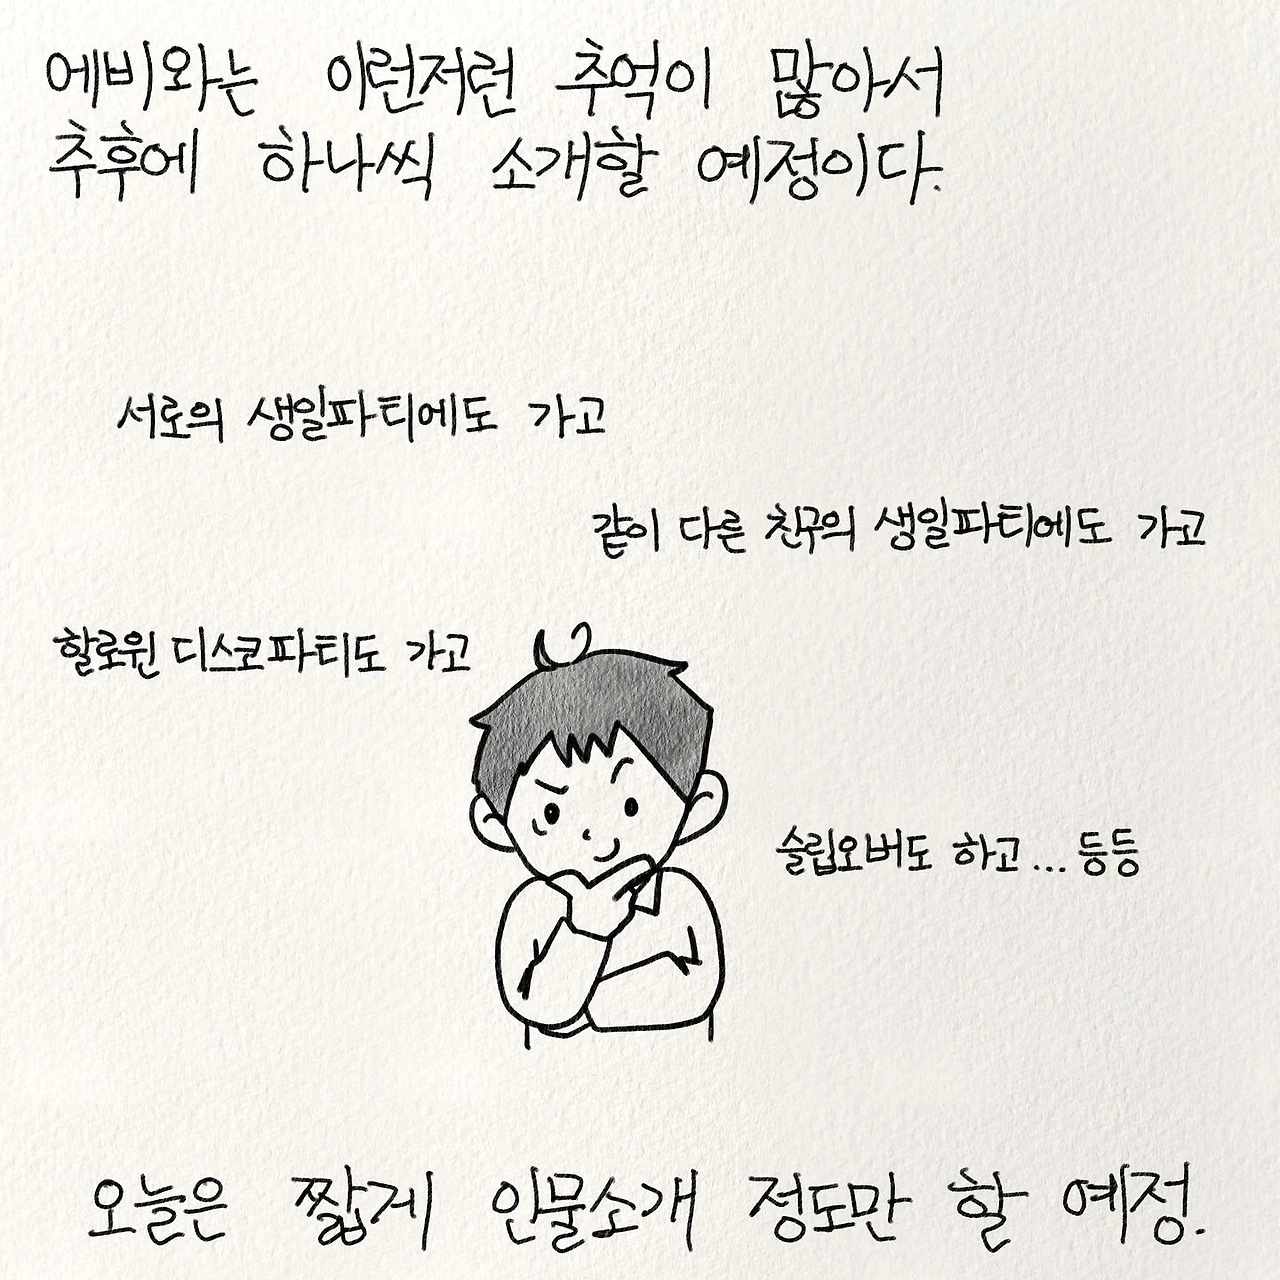 에비와는 이런저런 추억이 많아서
추후에 하나씩 소개할 예정이다.
서로의 생일파티에도 가고
같이 다른 친구의 생일파티에도 가고
할로윈 디스코파티도 가고
슬립오버도 하고... 등등
오늘은 짧게 인물소개 정도만 할 예정.